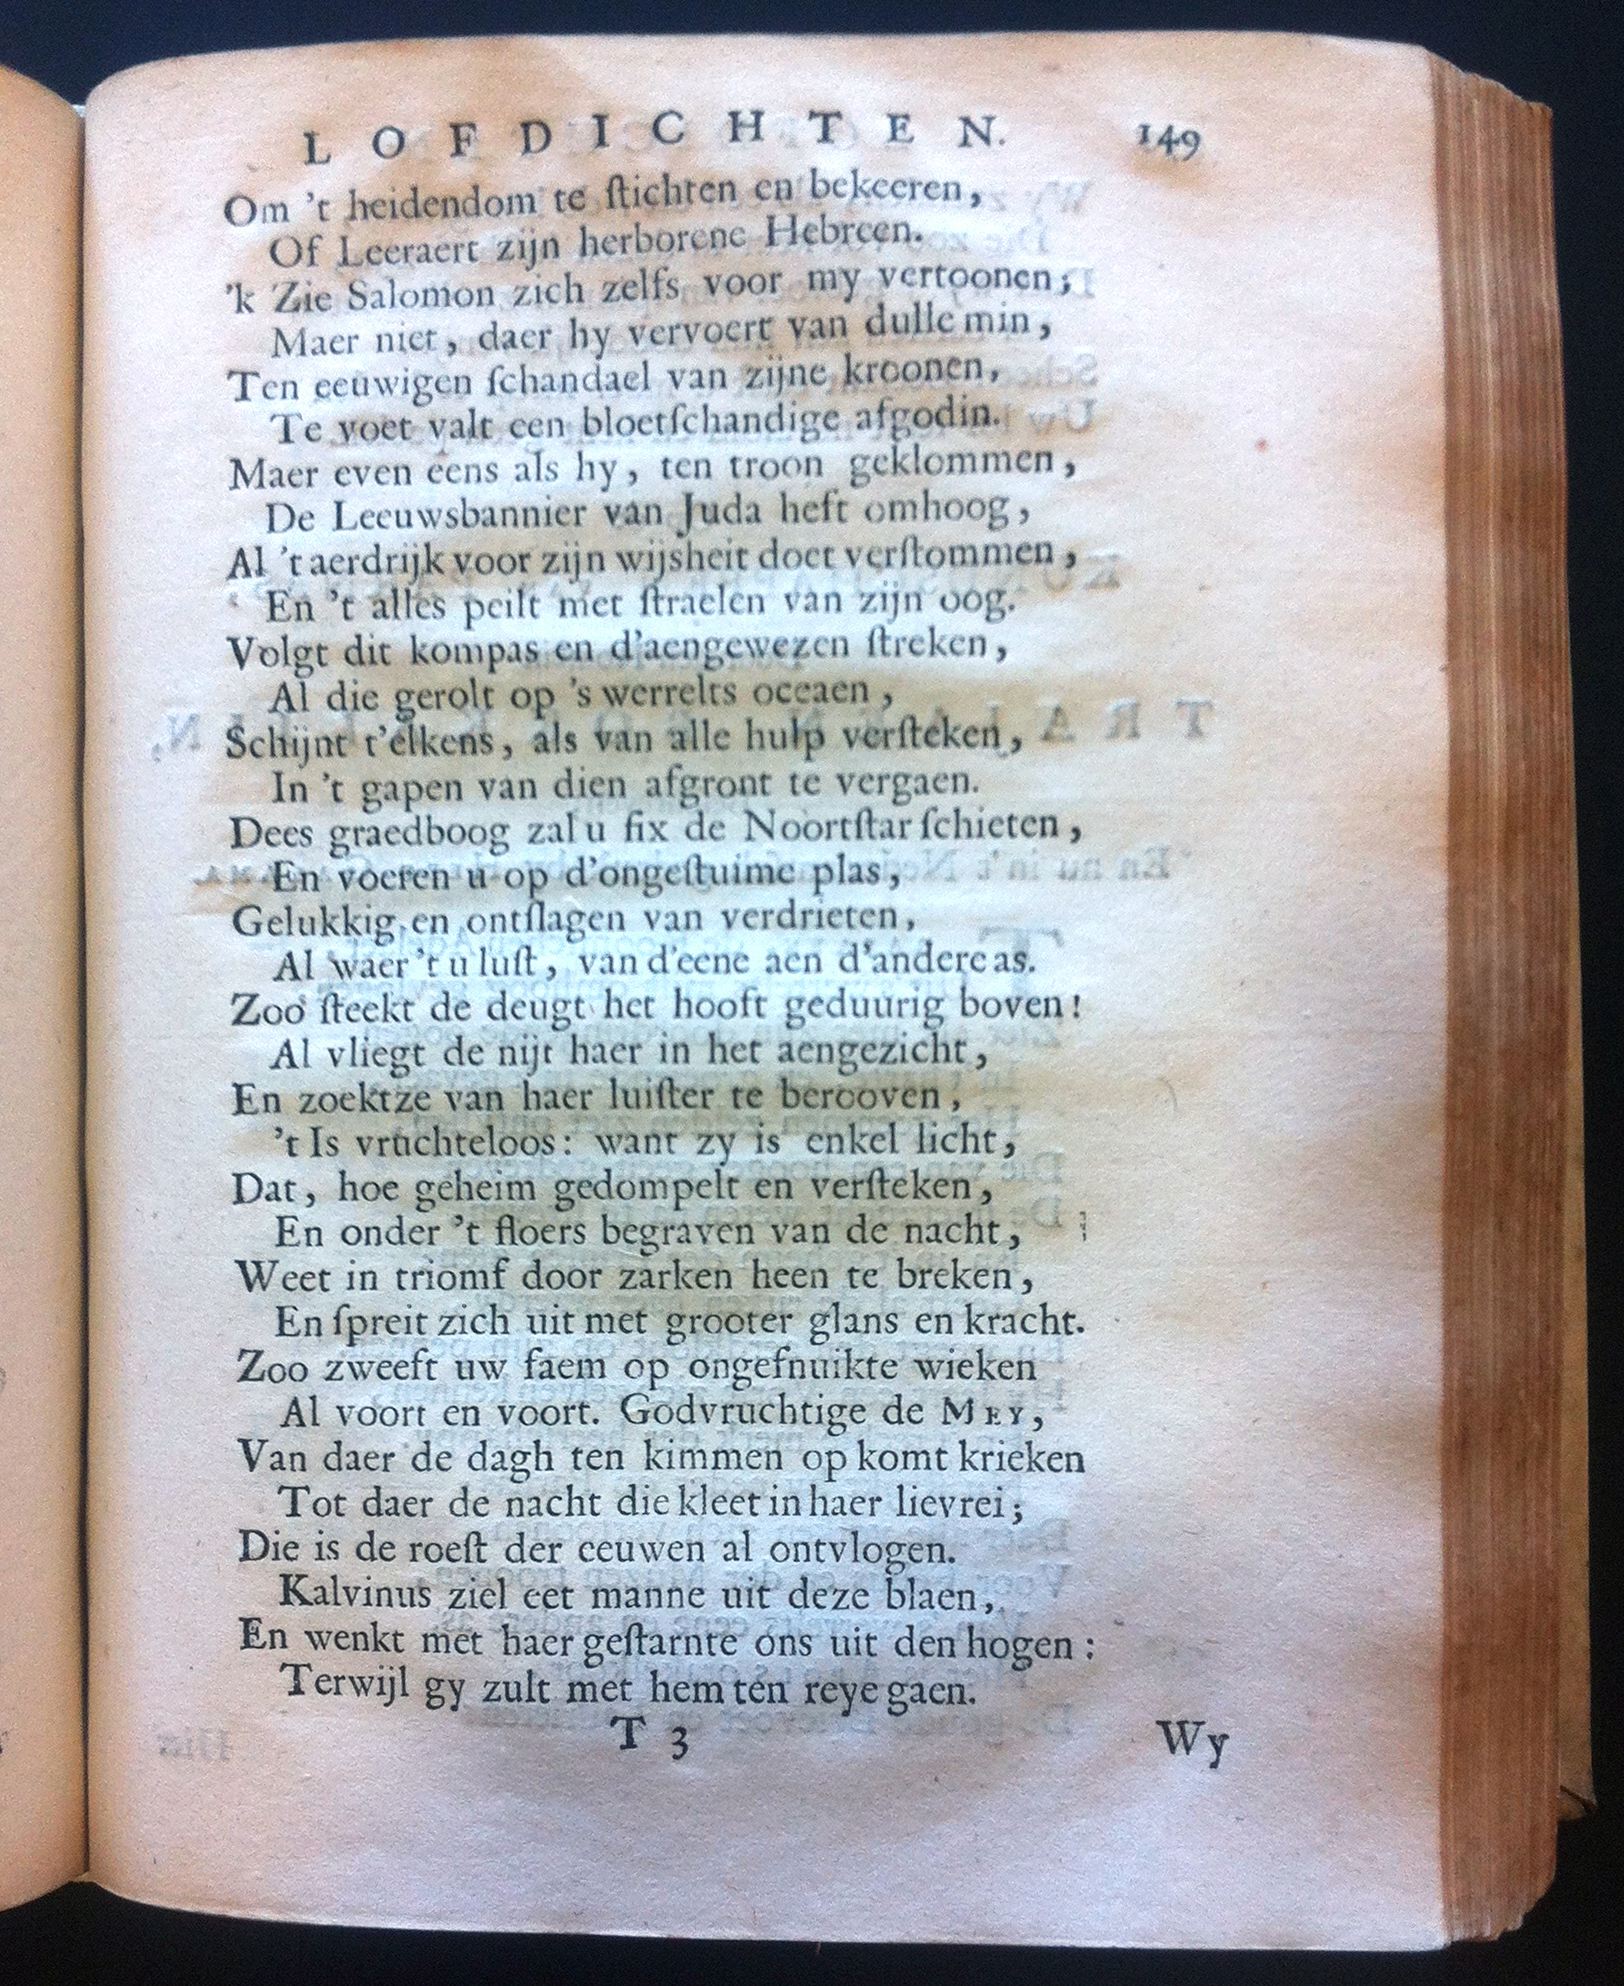 LOFDICHTEN. 149
Om 't heidendom te ſtichten en bekeeren,
Of Leeraert zijn herborene Hebreen.
'k Zie Salomon zich zelfs voor my vertoonen;
Maer niet, daer hy vervoert van dulle min,
Ten eeuwigen ſchandael van zijne kroonen,
Te voet valt een bloetſchandige afgodin.
Maer even eens als hy, ten troon geklommen,
De Leeuwsbannier van Juda heft omhoog,
Al 't aerdrijk voor zijn wijsheit doet verſtommen,
En 't alles peilt met ſtraelen van zijn oog.
Volgt dit kompas en d'aengewezen ſtreken,
Al die gerolt op 's werrelts oceaen,
Schijnt t'elkens, als van alle hulp verſteken,
In 't gapen van dien afgront te vergaen.
Dees graedboog zal u fix de Noortſtar ſchieten,
En voeren u op d'ongeſtuime plas,
Gelukkig en ontſlagen van verdrieten,
Al waer 't u luſt, van d'eene aen d'andere as.
Zoo ſteekt de deugt het hooft geduurig boven!
Al vliegt de nijt haer in het aengezicht,
En zoektze van haer luiſter te berooven,
't Is vruchteloos: want zy is enkel licht,
Dat, hoe geheim gedompelt en verſteken,
En onder 't floers begraven van de nacht,
Weet in triomf door zarken heen te breken,
En ſpreit zich uit met grooter glans en kracht.
Zoo zweeft uw faem op ongefnuikte wieken
Al voort en voort. Godvruchtige de MEY,
Van daer de dagh ten kimmen op komt krieken
Tot daer de nacht die kleet in haer lievrei;
Die is de roeſt der eeuwen al ontvlogen.
Kalvinus ziel eet manne uit deze blaen,
En wenkt met haer geſtarnte ons uit den hogen:
Terwijl gy zult met hem ten reye gaen.
T 3 Wy